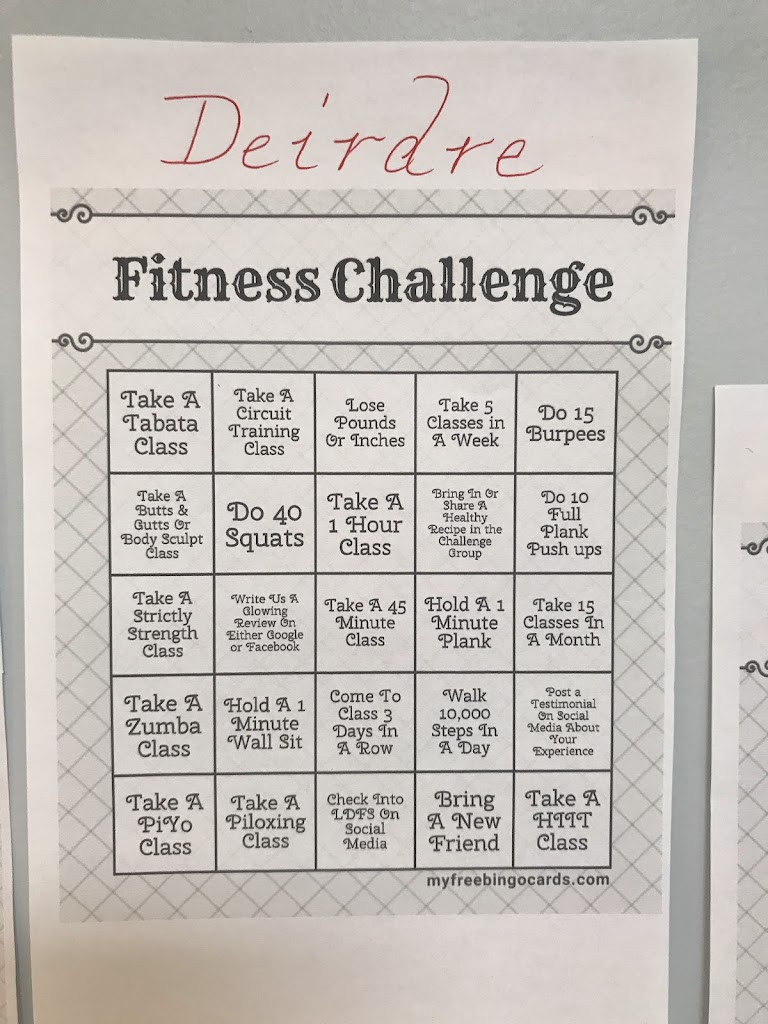 Deirdre
Fitness Challenge
Take A
Tabata
Class
Take A
Circuit
Training
Class
Lose
Pounds
Or Inches
Take 5
Classes in
A Week
Do 15
Burpees
Take A
Butts &
Gutts Or
Body Sculpt
Class
Do 40
Squats
Take A
1 Hour
Class
Bring In Or
Share A
Healthy
Recipe in the
Challenge
Group
Do 10
Full
Plank
Push ups
Take A
Strictly
Strength
Class
Write Us A
Glowing
Review On
Either Google
or Facebook
Take A 45
Minute
Class
Hold A 1
Minute
Plank
Take 15
Classes In
A Month
Take A
Zumba
Class
Hold A 1
Minute
Wall Sit
Come To
Class 3
Days In
A Row
Walk
10,000
Steps In
A Day
Post a
Testimonial
On Social
Media About
Your
Experience
Take A
PiYo
Class
Take A
Piloxing
Class
Check Into
LDFS On
Social
Media
Bring
A New
Friend
Take A
HIIT
Class
myfreebingocards.com